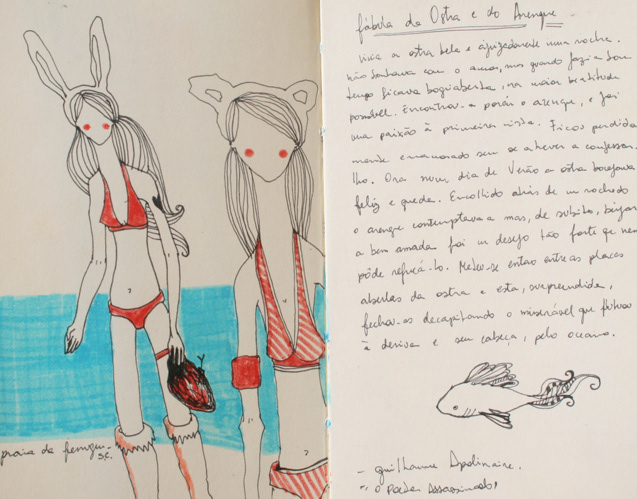 praia da ferrugem
sc.
fábula da Ostra e do Arenque
Vivia a ostra bela e ajuizadamente numa rocha.
Não sonhava com o amor, mas quando fazia bom
tempo ficava boquiaberta, na maior beatitude
possível. Encontrou-a porém o arenque, e foi
uma paixão à primeira vista. Ficou perdida
mente enamorado sem se atrever a confessar-
lho. Ora num dia de Verão a ostra bocejava
feliz e queda. Encolhido atrás de um rochedo
o arenque contemplava-a mas, de súbito, beijar
a bem amada foi um desejo tão forte que nem
pôde refreá-lo. Meteu-se então entre as placas
abertas da ostra e esta, surpreendida,
fechou-as decapitando o miserável que flutuou
à deriva e sem cabeça, pelo oceano.
- Guilhaume Apolinaire.
O Poeta Assassinado